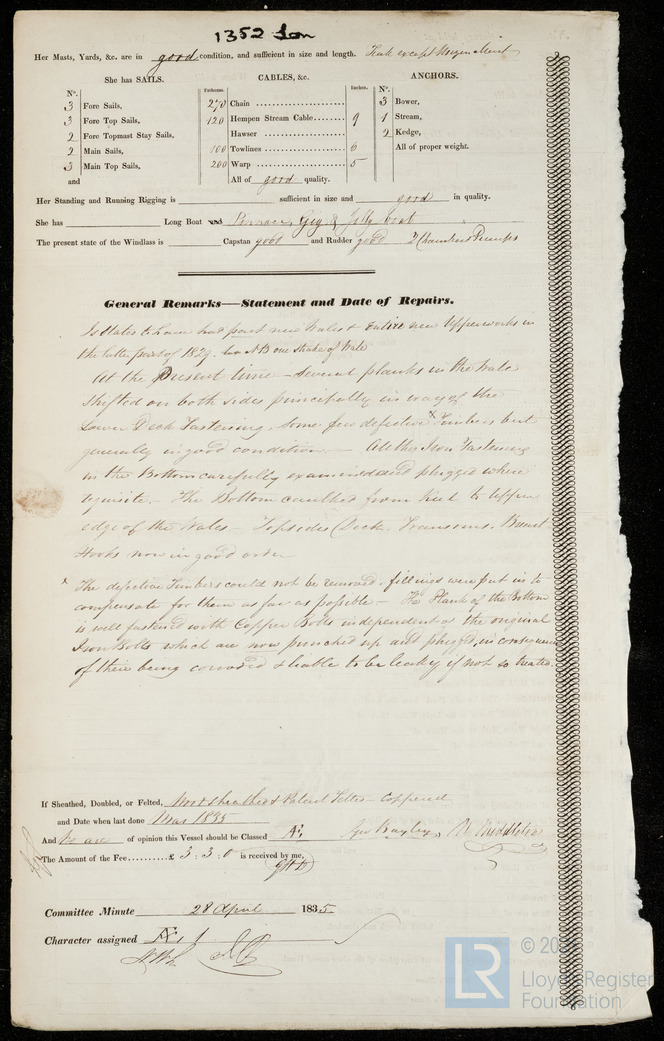 1352 Lon
Her Masts, Yards, &c. are in good condition, and sufficient in size and length. Teak except Mizen Mast
She has SAILS.
CABLES, &c.
ANCHORS.
Nº.
Fathoms.
Inches.
Nº.
3 Fore Sails,
270 Chain
3 Bower,
3 Fore Top Sails,
120 Hempen Stream Cable 9
1 Stream,
2 Fore Topmast Stay Sails,
Hawser
2 Kedge,
2 Main Sails,
100 Towlines 6
All of proper weight.
3 Main Top Sails,
200 Warp 5
and
All of good quality.
Her Standing and Running Rigging is sufficient in size and good in quality.
She has Long Boat and Pinnace, Gig & Jolly boat
The present state of the Windlass is Capstan good and Rudder good 2 Chambers Pumps
General Remarks—Statement and Date of Repairs.
Is states to have had part new Wales & entire new Upperworks in
the latter part of 1829. one strake of Wale
At the Present time - several planks in the Wale
shifted on both sides principally in way of the
Lower Deck Fastening, some few defective x Timbers but
generally in good condition - All the Iron Fastening
in the Bottom carefully examined and plugged where
requisite. - The Bottom caulked from Keel to Upper
edge of the Wales - Topsides, Deck, Transoms, Breast
Hooks now in good order
x The defective Timbers could not be removed, fillings were put in to
compensate for them as far as possible - The Plank of the Bottom
is well fastened with Copper Bolts independent of the original
Iron Bolts which are now punched up and plugged, in consequence
of their being corroded & liable to be leaky if not so treated.
If Sheathed, Doubled, or Felted, Wood sheathed & Patent Felted - Coppered
and Date when last done 1835
And We are of opinion this Vessel should be Classed Æ1 Geo Bayley, Middleton
The Amount of the Fee £ 3 : 3 : 0 is received by me,
Committee Minute 28 April 1835
Character assigned Æ 1
LR
© 20
Lloyd's Register
Foundation